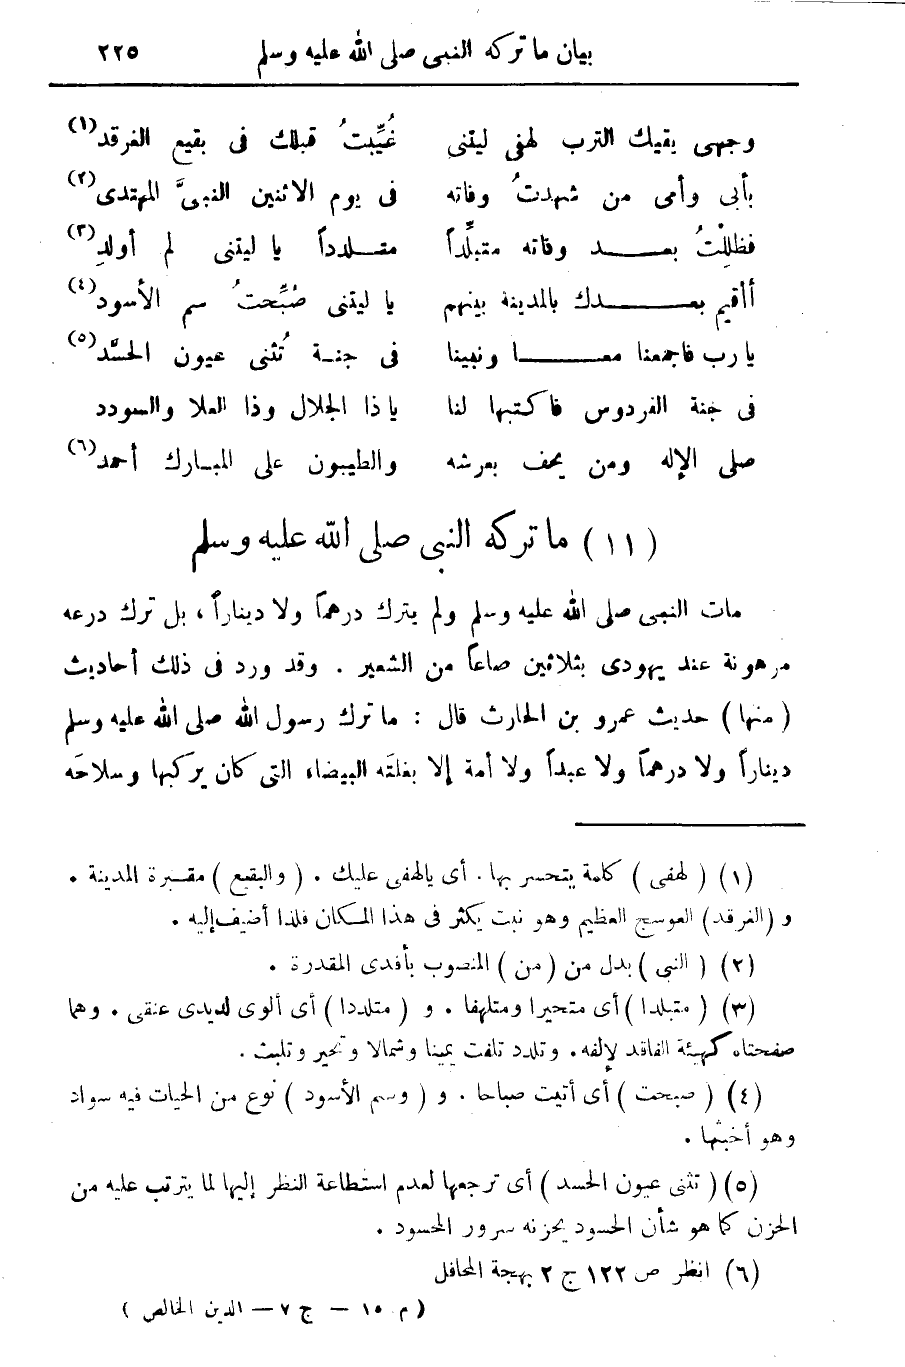 بيان ما تركه النبى صلى الله عليه وسلم ٢٢٥
وجهى يقيك الترب لهفى ليتنى غُيِّبتُ قبلك فى بقيع الغرقد(١)
بأبى وأمى من شهدتُ وفاته فى يوم الاثنين النبىَّ المهتدى(٢)
فظلِلْتُ بعـــد وفاته متبلِّداً متـلدداً يا ليتنى لم أولدِ(٣)
أأقيم بعـــدك بالمدينة بينهم يا ليتنى صُبِّحتُ سم الأسود(٤)
يا رب فاجمعنا معـــا ونبينا فى جنـة تُثنى عيون الحسَّد(٥)
فى جنة الفردوس فاكتبها لنا ياذا الجلال وذا العلا والسودد
صلى الإله ومن يحف بعرشه والطيبون على المبـارك أحمد(٦)
(١١) ما تركه النبى صلى الله عليه وسلم
مات النبى صلى الله عليه وسلم ولم يترك درهماً ولا ديناراً، بل ترك درعه
مرهونة عند يهودى بثلاثين صاعاً من الشعير . وقد ورد فى ذلك أحاديث
(منها) حديث عمرو بن الحارث قال : ما ترك رسول الله صلى الله عليه وسلم
ديناراً ولا درهماً ولا عبداً ولا أمة إلا بغلتَه البيضاء التى كان يركبها وسلاحَه
(١) (لهفى) كلمة يتحسر بها . أى يالهفى عليك . (والبقيع) مقـبرة المدينة .
و (الغرقد) العوسج العظيم وهو نبت يكثر فى هذا المـكان فلذا أضيف إليه .
(٢) (النبى) بدل من (من) المنصوب بأفدى المقدرة .
(٣) (متبلدا) أى متحيرا ومتلهفا . و (متلددا) أى ألوى لديدى عنقى . وهما
صفحتاه كهيئة الفاقد لإلفه . وتلدد تلفت يمينا وشمالا وتحير وتلبث .
(٤) (صبحت) أى أتيت صباحا . و (وسم الأسود) نوع من الحيات فيه سواد
وهو أخبثها .
(٥) (تثنى عيون الحسد) أى ترجعها لعدم استطاعة النظر إليها لما يترتب عليه من
الحزن كما هو شأن الحسود يحزنه سرور المحسود .
(٦) انظر ص ١٢٢ ج ٢ بهجة المحافل
(م ١٥ — ج ٧ — الدين الخالص)